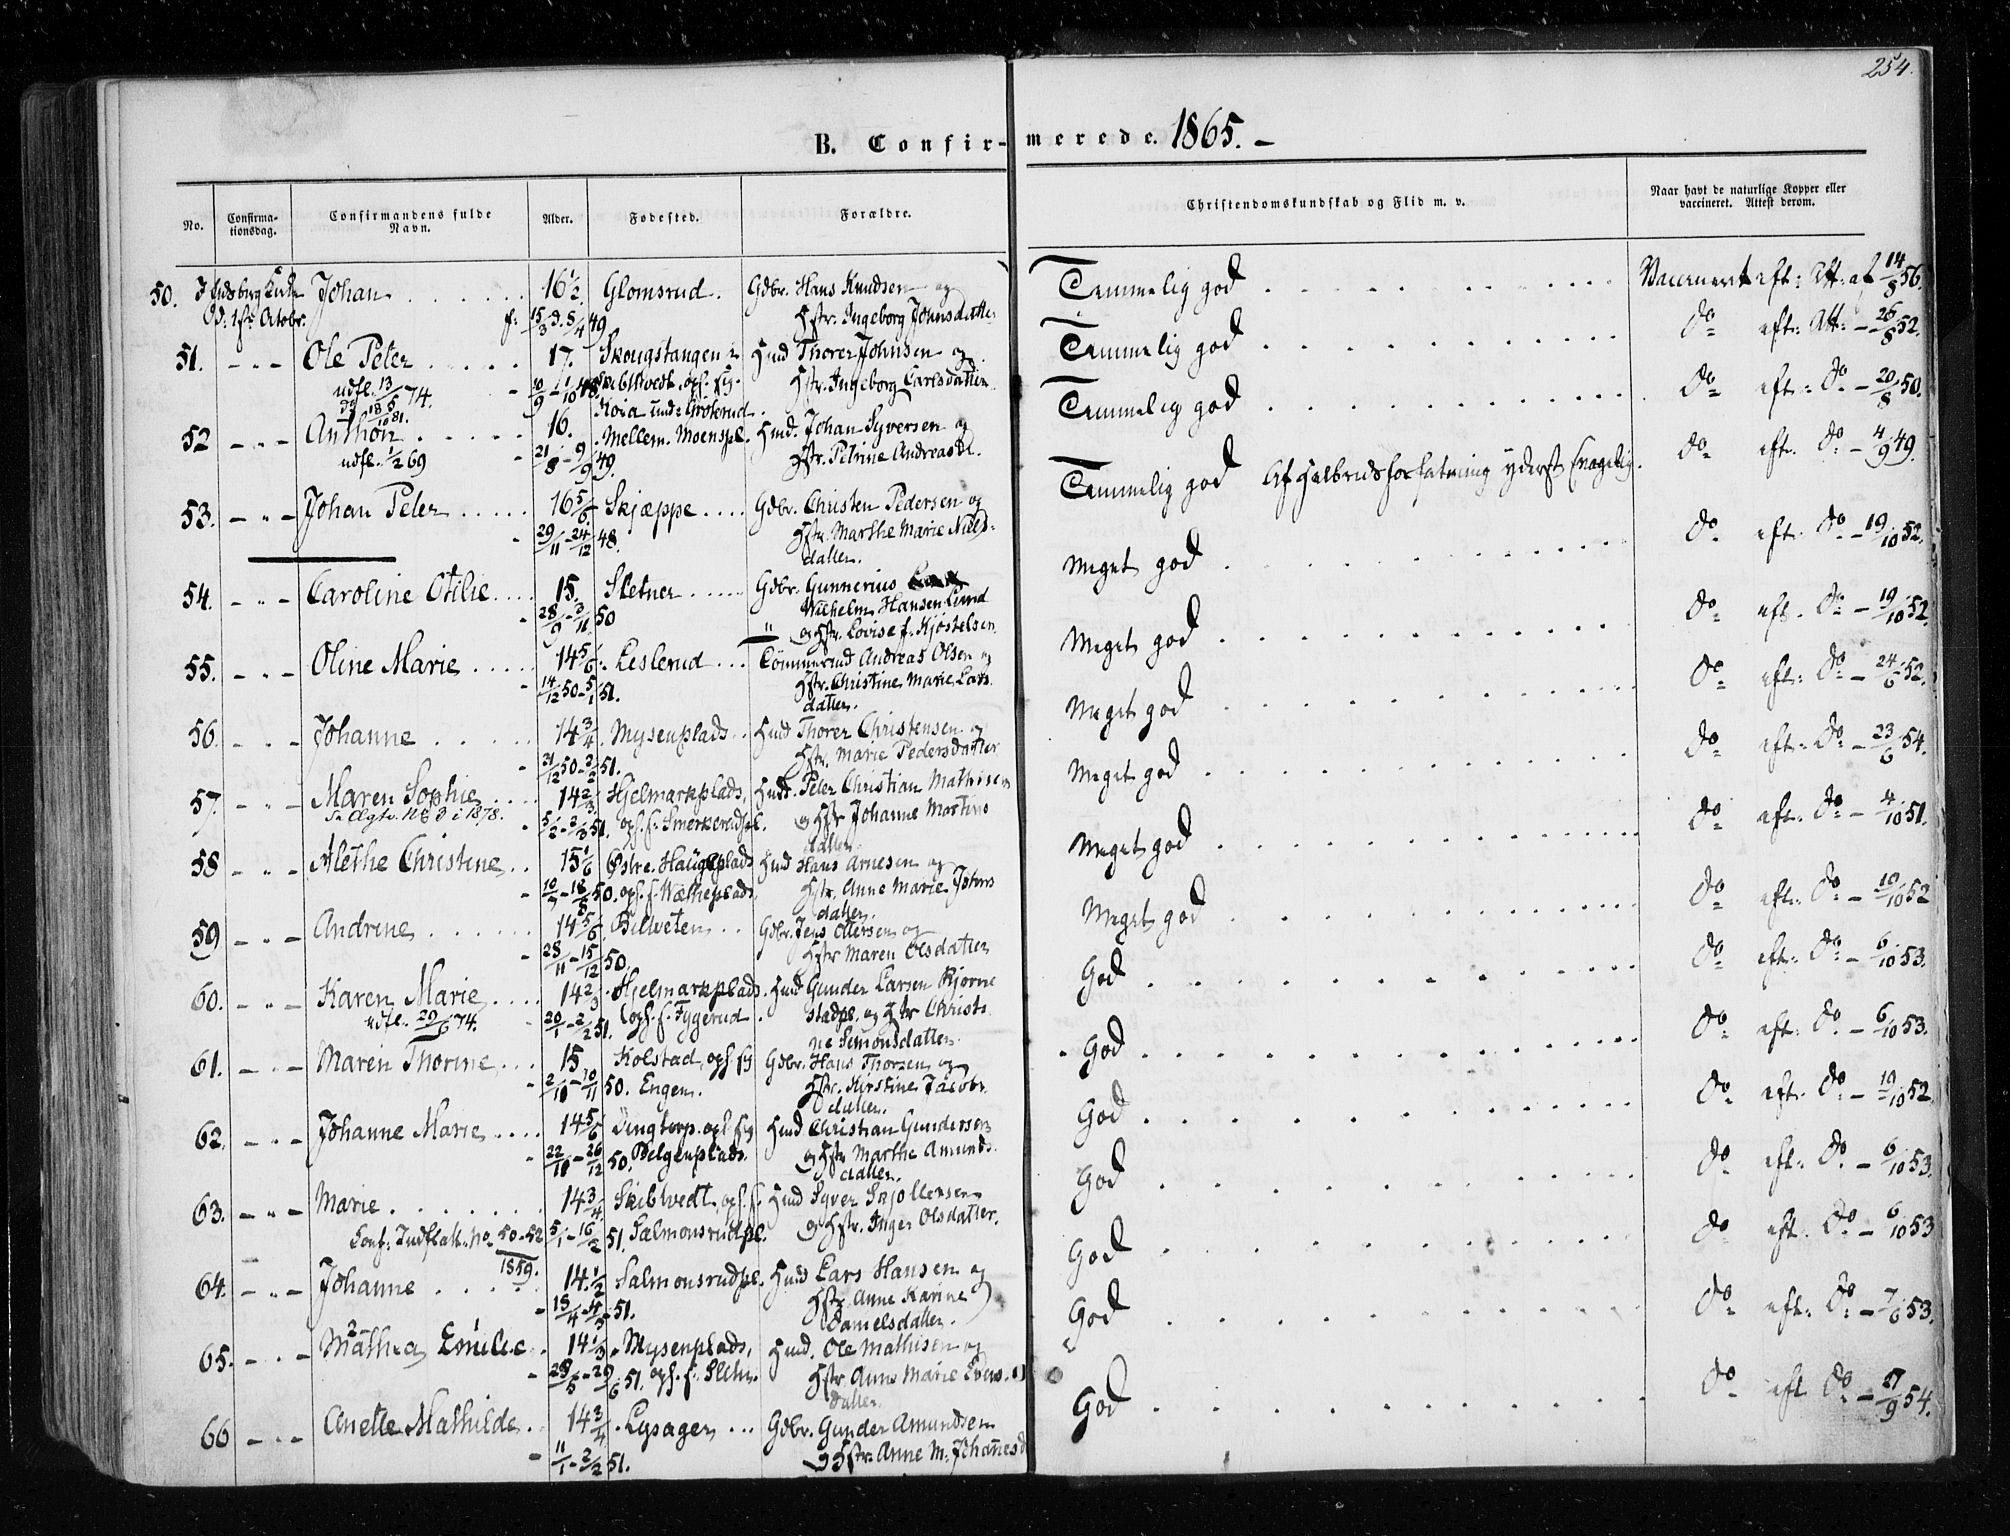 254.
B. Confirmerede. 1865. –
No. Confirmationsdag. Confirmandens fulde Navn. Alder. Fødested. Forældre. Christendomskundskab og Flid m. v. Naar havt de naturlige Kopper eller vaccineret. Attest derom.
50. Johan 16 1/2 Glomsrud. Gdbr. Hans Knudsen og Temmelig god Vaccineret eft: Att: af 14/8 56.
Od: 1ste Octobr. f: 15/3 d. 8/4 49 Hstr: Ingeborg Johnsdatter
51. – " – Ole Peter 17. Skougstangen Hmd Thorer Johnsen og Temmelig god do eft: Att: – 26/8 52.
udfl. 13/5 74. 10/9 – 1/10 48. Skibtvedt, ops. Hstr. Ingeborg Carlsdatter
Koia und: Grøterud
52 – " – Anthon 16. Mellem Moenspl. Hmd. Johan Syversen og Temmelig god do eft: do – 20/8 50.
udfl. 1/2 69 21/8 – 9/9 49. Hstr. Petrine Andreasd.
53. – " – Johan Peter 16 5/6 Skjæppe Gdbr. Christen Pedersen og Temmelig god Af Helbredsforfatning yderst svagelig. do eft. do – 4/9 49.
29/11 – 24/12 48. Hstr. Marthe Marie Niels-
datter.
54. – " – Caroline Otilie 15. Sletner Gdbr. Gunnerius Meget god do eft. do – 19/10 52.
28/9 – 3/11 50 Wilhelm Hansen Lund
og Hstr. Lovise f. Kjøstelsen
55. – " – Oline Marie 14 5/6 Leslerud Tømmermd Andreas Olsen og Meget god do eft. do – 19/10 52.
14/12 50 – 5/1 51. Hstr. Christine Marie Lars
datter.
56. – " – Johanne 14 3/4 Mysenplads Hmd Thorer Christensen og Meget god do eft: do – 24/6 52.
31/12 50 – 2/2 51. Hstr. Marie Pedersdatter
57. – " – Maren Sophie 14 2/3 Hjelmarkplads, Hmd. Peter Christian Mathisen Meget god do eft: do – 23/6 54.
Se Ægtev. No 3 i 1878. 5/2 – 2/3 51. ops. f. Smerkerudpl. og Hstr Johanne Martins
datter
58 – " – Alethe Christine 15 1/6 Østre Haugeplads Hmd Hans Arnesen og Meget god do eft: do – 4/10 51.
10/7 – 18/8 50. ops. f. Wætheplads Hstr. Anne Marie Johns
datter.
59 – " – Andrine 14 5/6 Biltveten Gdbr. Jens Ottersen og Meget god do eft: do – 19/10 52
28/11 – 15/12 50. Hstr Maren Olsdatter
60. – " – Karen Marie 14 2/3 Hjelmarkplads Hmd Gunder Larsen Bjørne God do eft: do – 6/10 53.
udfl. 29/6 74. 20/1 – 2/2 51. ops. f. Fyggerud stadpl. og Hstr Christi
ne Simonsdatter
61. – " – Maren Thorine 15 Kolstad, ops. Gdbr. Hans Thorsen og God do eft: do – 6/10 53.
2/10 – 10/11 50. Engen. Hstr. Kirstine Jacobs
datter.
62. – " – Johanne Marie 14 5/6 Dingtorp. ops. Hmd Christian Gundersen God do eft: do – 19/10 52
22/10 – 26/12 50. Belgenplads. og Hstr Marthe Amunds
datter.
63. – " – Marie 14 3/4 Skibtvedt, ops. f. Hmd Syver Snjollersen God do eft: do – 6/10 53.
Conf: Indflatt. No 50–52 5/1 – 16/2 51. Salmonsrudpl. og Hstr. Inger Olsdatter.
1859.
64. – " – Johanne 14 1/2 Salmonsrudpl. Hmd Lars Hansen og God do eft: do – 6/10 53
51. Hstr. Anne Karine
Danielsdatter.
65. – " – Mathea Emilie 14 1/3 Mysenplads, Hmd. Ole Mathisen og God do eft: do – 7/6 53.
28/5 – 29/6 51. ops. f. Hstr Anne Marie
datter
66 – " – Anette Mathilde 14 3/4 Lysager Gdbr. Gunder Amundsen God do eft do – 27/9 54.
11/1 – 2/2 51. og Hstr. Anne M. Johannesd